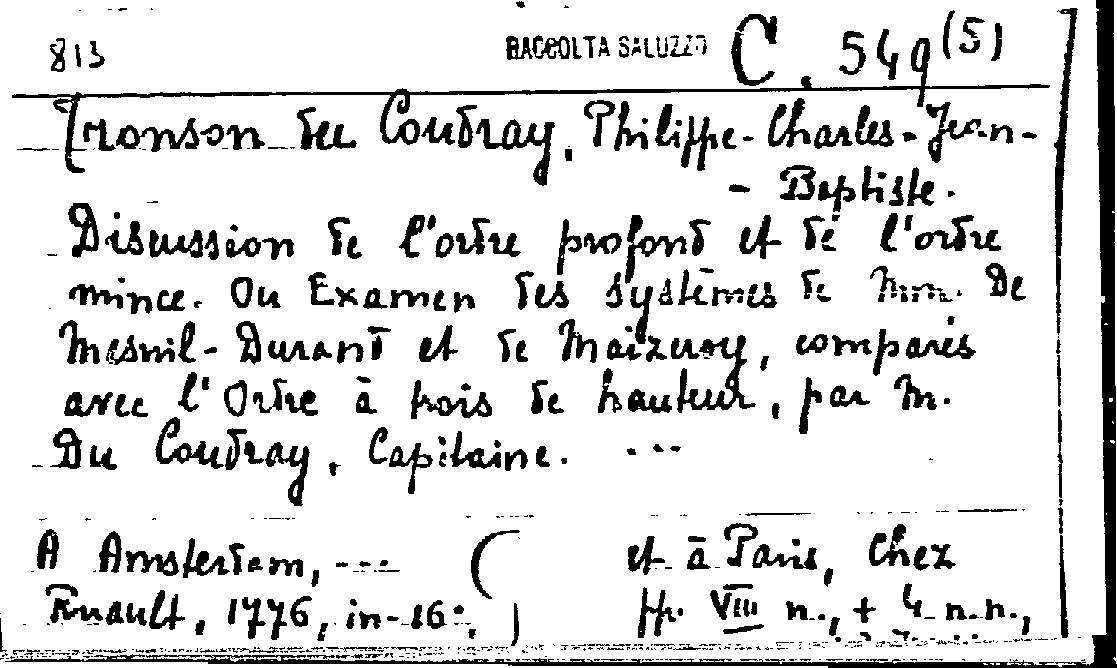 813 RACCOLTA SALUZZO C. 549(5)
Tronson du Coudray, Philippe-Charles-Jean-
- Baptiste.
Discussion de l'ordre profond et de l'ordre
mince. Ou Examen des systèmes de Mm. De
Mesnil-Durand et de Maizeroy, comparés
avec l'Ordre à trois de hauteur, par M.
Du Coudray, Capitaine. ...
A Amsterdam, --- ( et à Paris, Chez
Ruault, 1776, in-16°, ) pp. VIII n., + 4 n.n.,